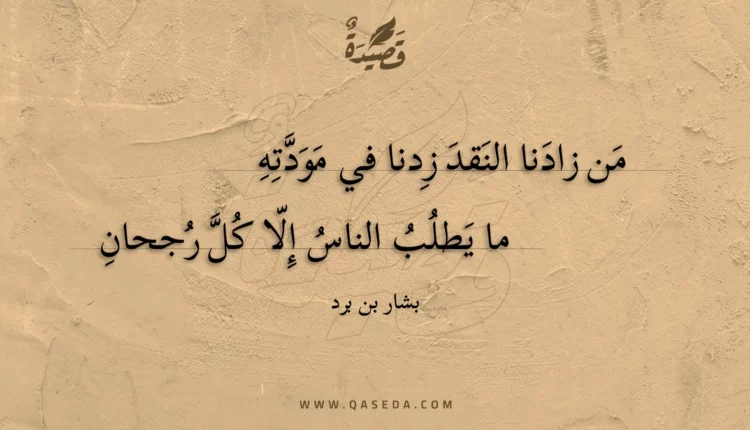 قَصِيدَةٌ
مَن زادَنا النَقدَ زِدنا في مَوَدَّتِهِ
ما يَطلُبُ الناسُ إِلّا كُلَّ رُجحانِ
بشار بن برد
WWW.QASEDA.COM